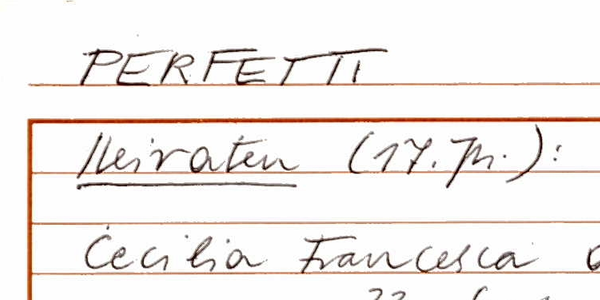 PERFETTI
Heiraten (17. Jh.):
Cecilia Francesca